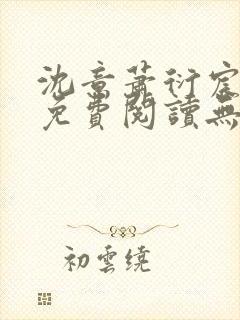 沈章蕭衍宸
免費閱讀無
初雲繞